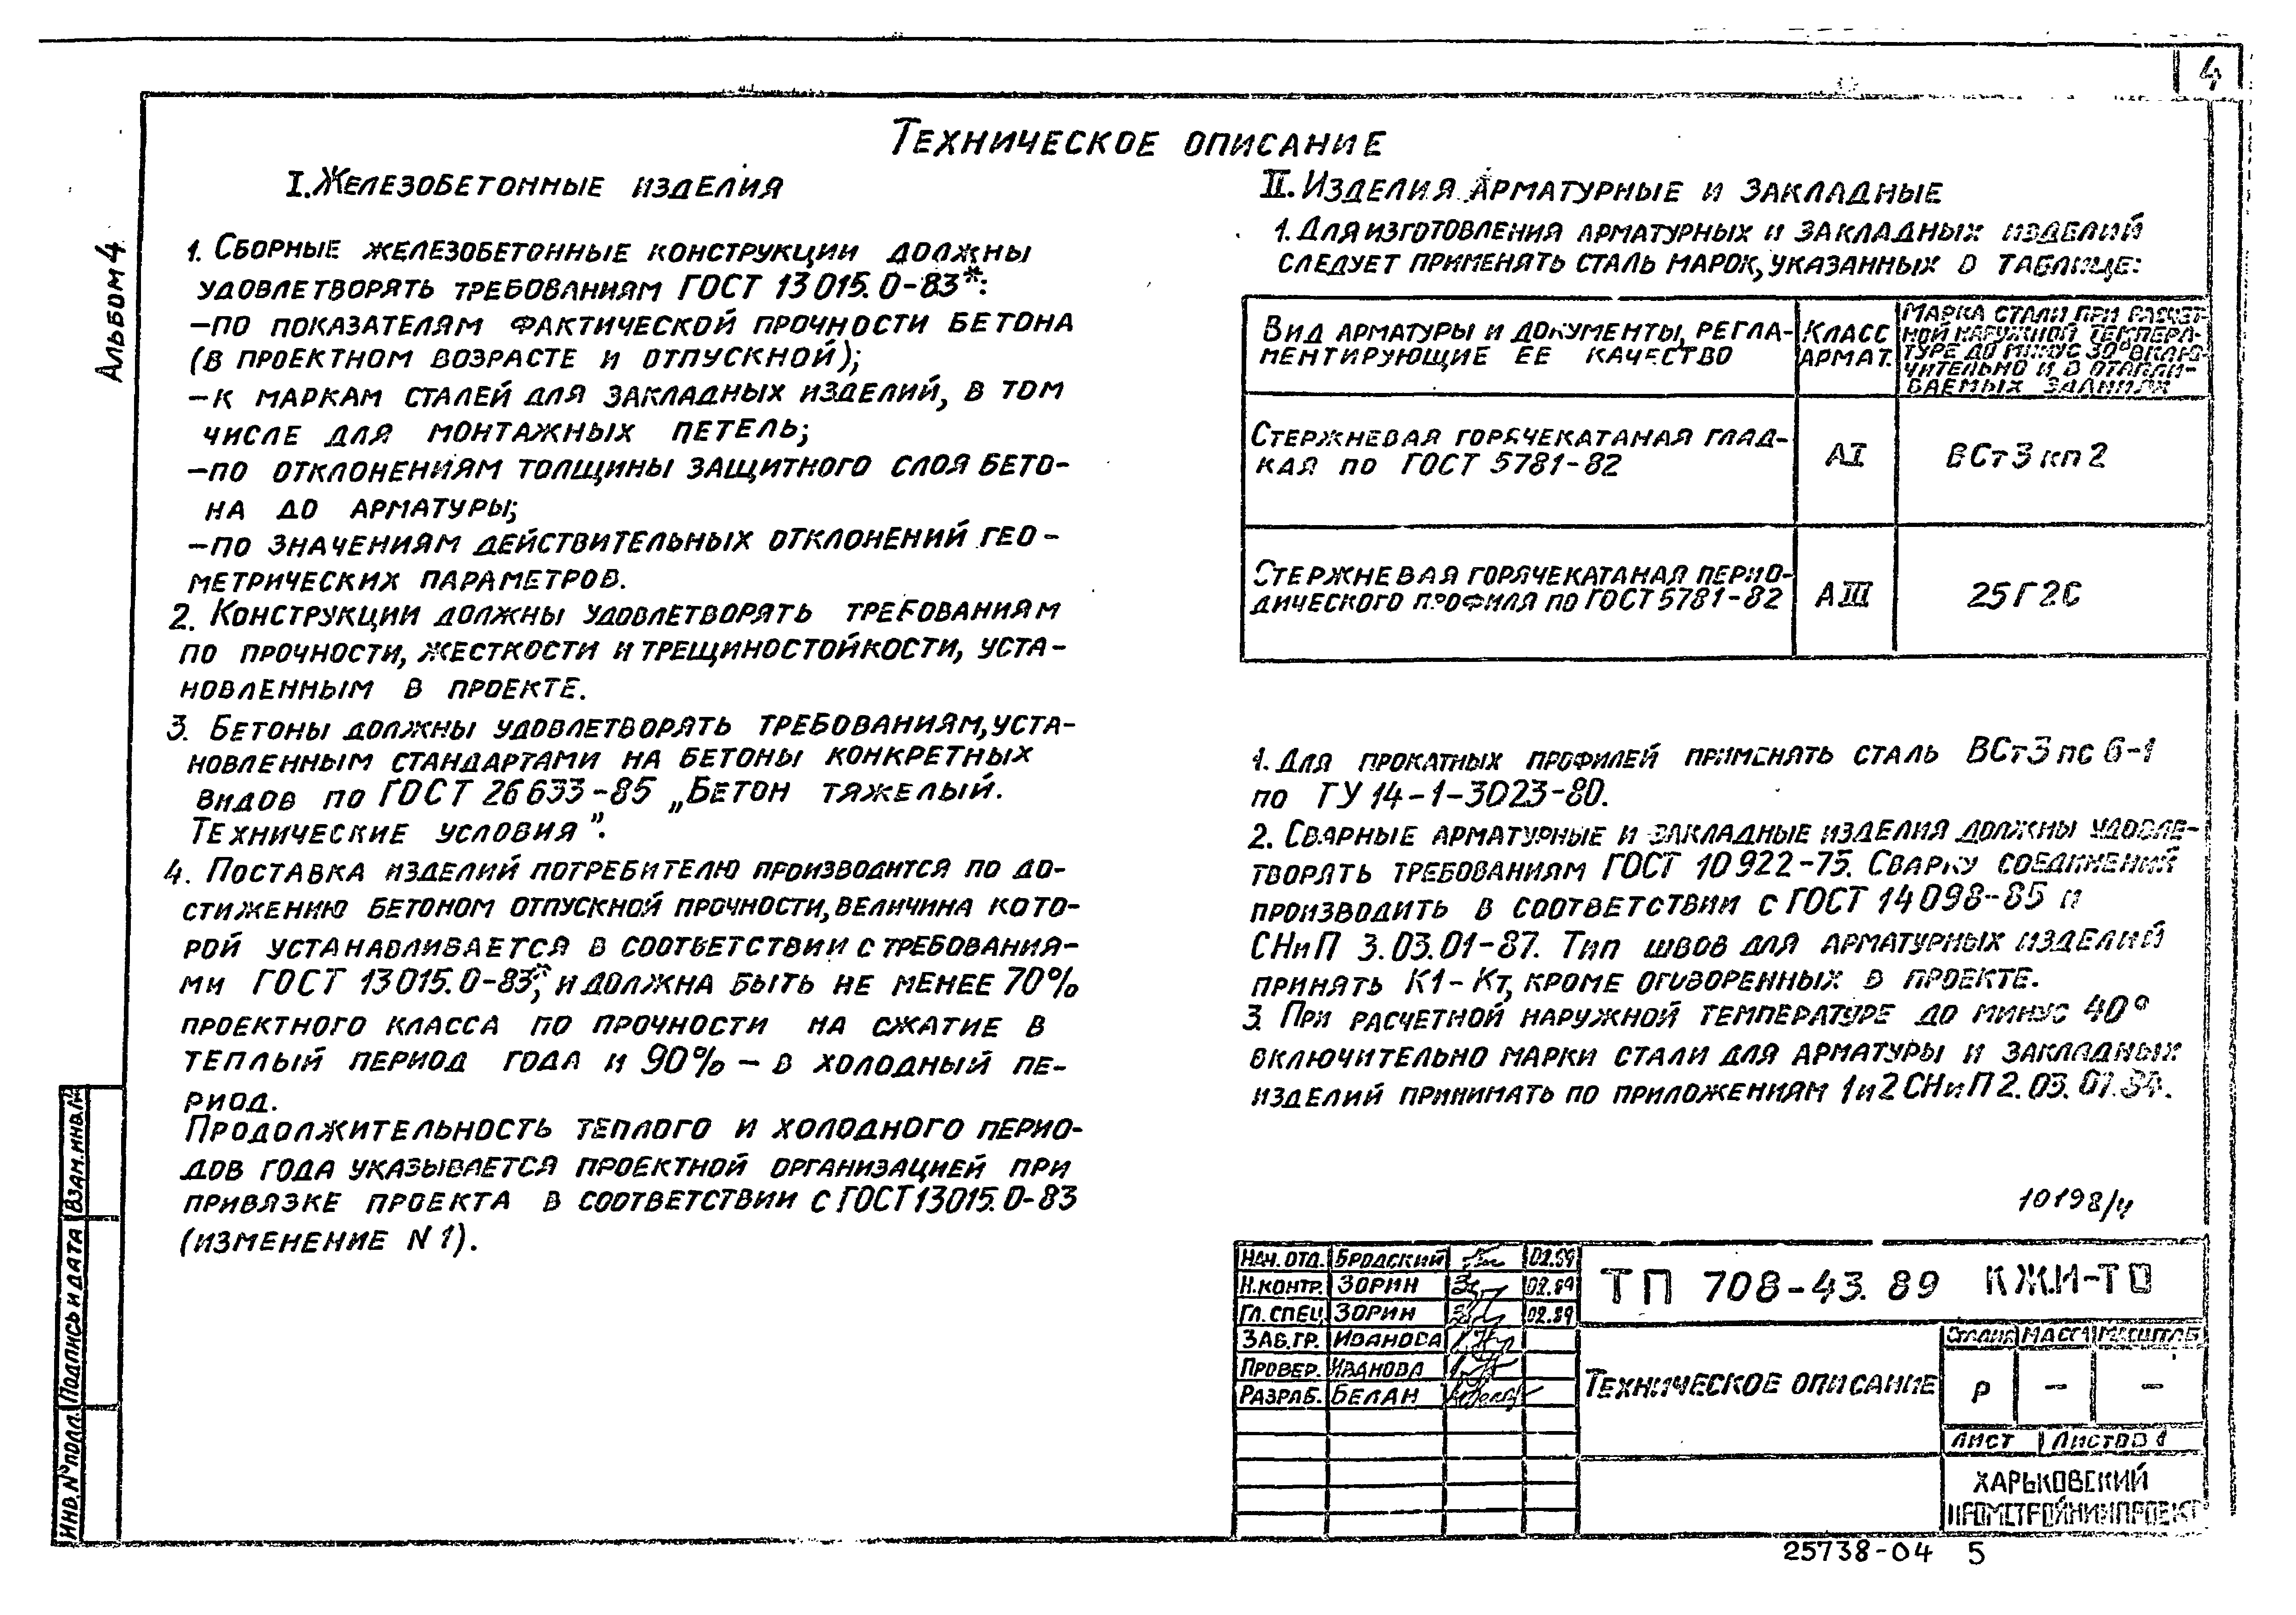 4
Альбом 4
Техническое описание
I. Железобетонные изделия
1. Сборные железобетонные конструкции должны
удовлетворять требованиям ГОСТ 13015.0-83*:
-по показателям фактической прочности бетона
(в проектном возрасте и отпускной);
-к маркам сталей для закладных изделий, в том
числе для монтажных петель;
-по отклонениям толщины защитного слоя бето-
на до арматуры;
-по значениям действительных отклонений гео-
метрических параметров.
2. Конструкции должны удовлетворять требованиям
по прочности, жесткости и трещиностойкости, уста-
новленным в проекте.
3. Бетоны должны удовлетворять требованиям, уста-
новленным стандартами на бетоны конкретных
видов по ГОСТ 26633-85 „Бетон тяжелый.
Технические условия".
4. Поставка изделий потребителю производится по до-
стижению бетоном отпускной прочности, величина кото-
рой устанавливается в соответствии с требования-
ми ГОСТ 13015.0-83*, и должна быть не менее 70%
проектного класса по прочности на сжатие в
теплый период года и 90% - в холодный пе-
риод.
Продолжительность теплого и холодного перио-
дов года указывается проектной организацией при
привязке проекта в соответствии с ГОСТ 13015.0-83
(изменение N 1).
II. Изделия арматурные и закладные
1. Для изготовления арматурных и закладных изделий
следует применять сталь марок, указанных в таблице:
Вид арматуры и документы, регла-
ментирующие ее качество
Класс
армат.
Марка стали при расчет-
ной наружной темпера-
туре до минус 30° вклю-
чительно и в отапли-
ваемых зданиях
Стержневая горячекатаная глад-
кая по ГОСТ 5781-82
АI
ВСт3кп2
Стержневая горячекатаная перио-
дического профиля по ГОСТ 5781-82
АIII
25Г2С
1. Для прокатных профилей применять сталь ВСт3пс6-1
по ТУ 14-1-3023-80.
2. Сварные арматурные и закладные изделия должны удовле-
творять требованиям ГОСТ 10922-75. Сварку соединений
производить в соответствии с ГОСТ 14098-85 и
СНиП 3.03.01-87. Тип швов для арматурных изделий
принять К1-Кт, кроме оговоренных в проекте.
3. При расчетной наружной температуре до минус 40°
включительно марки стали для арматуры и закладных
изделий принимать по приложениям 1 и 2 СНиП 2.03.01.84.
10198/4
Нач. отд. Бродский 02.89
Н.контр. Зорин 02.89
Гл. спец. Зорин 02.89
Зав.гр. Иванова
Провер. Иванова
Разраб. Белан
ТП 708-43.89 КЖ.И-ТО
Техническое описание
Стадия Масса Масштаб
Р - -
Лист Листов 1
Харьковский
Промстройниипроект
Взам.инв.№
Подпись и дата
Инв.№ подл.
25738-04 5